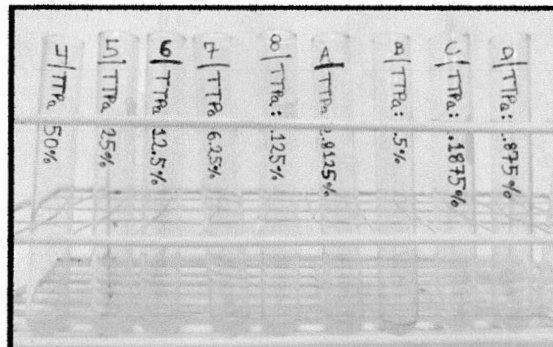 4 TTPa 50%
5 TTPa 25%
6 TTPa 12.5%
7 TTPa 6.25%
8 TTPa: .125%
A TTPa 2.8125%
B TTPa: .5%
C TTPa: .1875%
D TTPa: .875%